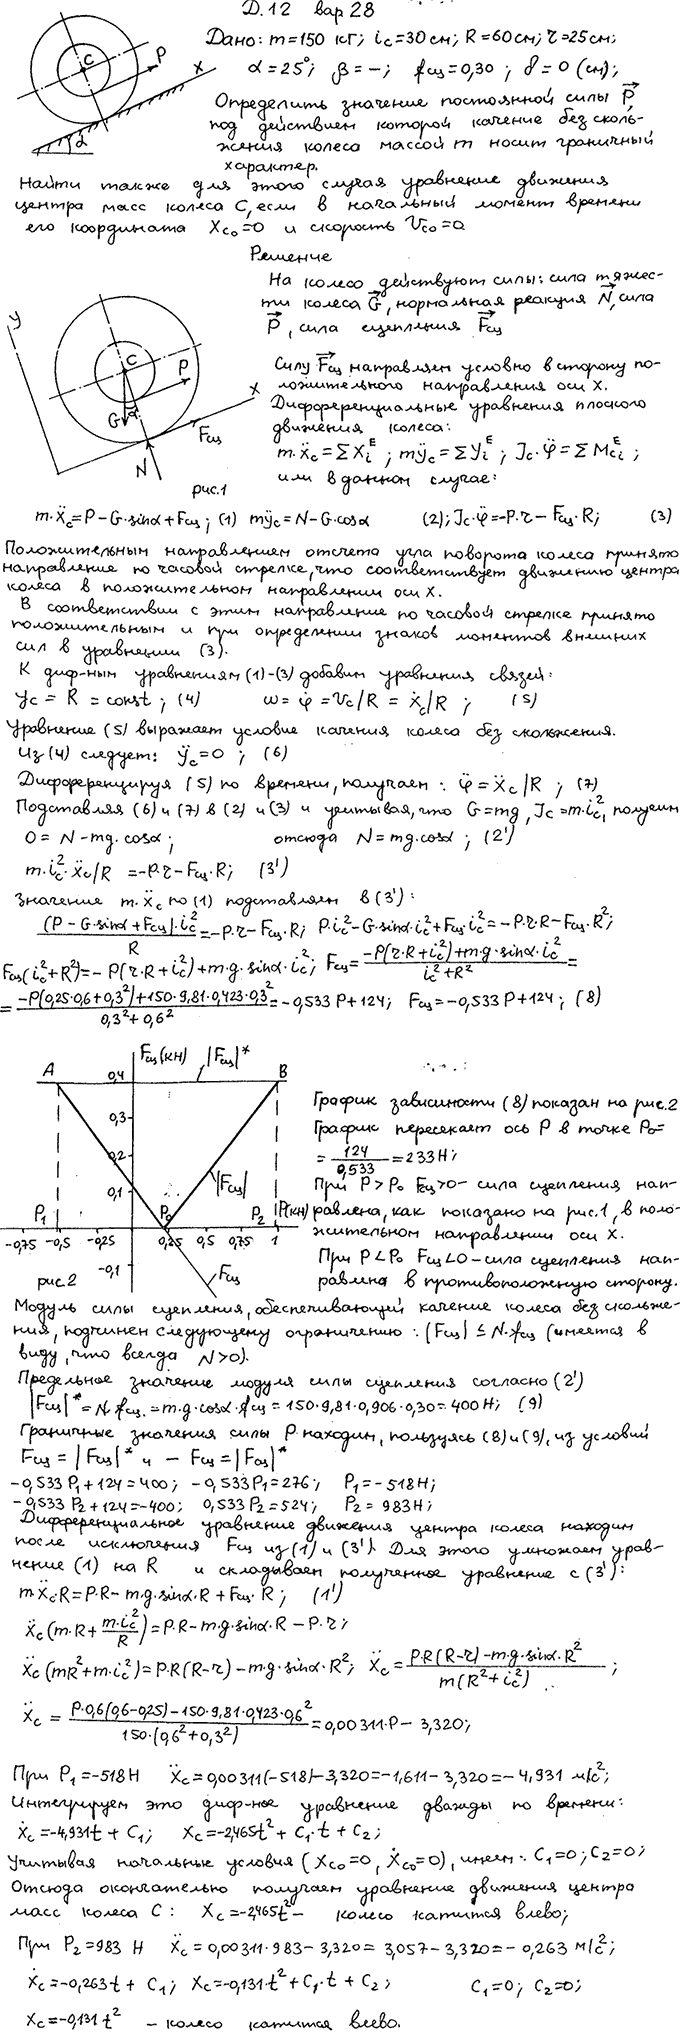 Д.12 вар 28
Дано: m=150 кг; i_c=30 см; R=60см; r=25см;
α=25°; β=—; f_сц=0,30; δ=0 (см);
Определить значение постоянной силы P,
под действием которой качение без сколь-
жения колеса массой m носит граничный
характер.
Найти также для этого случая уравнение движения
центра масс колеса C, если в начальный момент времени
его координата X_C0=0 и скорость V_C0=0
C
P
X
α
Решение
На колесо действуют силы: сила тяжес-
ти колеса G, нормальная реакция N, сила
P, сила сцепления F_сц
Силу F_сц направляем условно в сторону по-
ложительного направления оси X.
Дифференциальные уравнения плоского
движения колеса:
m·ẍ_c=ΣX_i^E; mÿ_c=ΣY_i^E; J_c·φ̈=ΣM_ci^E;
или в данном случае:
y
C
P
X
G
α
F_сц
N
рис.1
m·ẍ_c=P-G·sinα+F_сц; (1) mÿ_c=N-G·cosα (2); J_c·φ̈=-P·r-F_сц·R; (3)
Положительным направлением отсчета угла поворота колеса принято
направление по часовой стрелке, что соответствует движению центра
колеса в положительном направлении оси X.
В соответствии с этим направление по часовой стрелке принято
положительным и при определении знаков моментов внешних
сил в уравнении (3).
К диф-ным уравнениям (1)-(3) добавим уравнения связей:
y_c = R = const; (4) ω = φ̇ = V_c/R = ẋ_c/R; (5)
Уравнение (5) выражает условие качения колеса без скольжения.
Из (4) следует: ÿ_c=0; (6)
Дифференцируя (5) по времени, получаем: φ̈=ẍ_c/R; (7)
Подставляя (6) и (7) в (2) и (3) и учитывая, что G=mg, J_c=m·i_c², получим
0= N-mg·cosα; отсюда N=mg·cosα; (2')
m·i_c²·ẍ_c/R =-P·r-F_сц·R; (3')
Значение m·ẍ_c по (1) подставляем в (3'):
(P-G·sinα+F_сц)·i_c²/R=-P·r-F_сц·R; P·i_c²-G·sinα·i_c²+F_сц·i_c²=-P·r·R-F_сц·R²;
F_сц(i_c²+R²)=-P(r·R+i_c²)+m·g·sinα·i_c²; F_сц=(-P(r·R+i_c²)+m·g·sinα·i_c²)/(i_c²+R²)=
=(-P(0,25·0,6+0,3²)+150·9,81·0,423·0,3²)/(0,3²+0,6²)=-0,533P+124; F_сц=-0,533P+124; (8)
F_сц(кН) |F_сц|*
A 0,4 B
0,3
0,2
|F_сц|
0,1
P₁ P₀ P₂ P(кН)
-0,75 -0,5 -0,25 0,25 0,5 0,75 1
-0,1
рис.2 F_сц
График зависимости (8) показан на рис.2
График пересекает ось P в точке P₀=
=124/0,533=233Н;
При P>P₀ F_сц>0-сила сцепления нап-
равлена, как показано на рис.1, в поло-
жительном направлении оси X.
При P<P₀ F_сц<0-сила сцепления нап-
равлена в противоположную сторону.
Модуль силы сцепления, обеспечивающей качение колеса без скольже-
ния, подчинен следующему ограничению: |F_сц| ≤ N·f_сц (имеется в
виду, что всегда N>0).
Предельное значение модуля силы сцепления согласно (2')
|F_сц|*=N·f_сц=m·g·cosα·f_сц=150·9,81·0,906·0,30=400Н; (9)
Граничные значения силы P находим, пользуясь (8) и (9), из условий
F_сц=|F_сц|* и -F_сц=|F_сц|*
-0,533P₁+124=400; -0,533P₁=276; P₁=-518Н;
-0,533P₂+124=-400; 0,533P₂=524; P₂=983Н;
Дифференциальное уравнение движения центра колеса находим
после исключения F_сц из (1) и (3'). Для этого умножаем урав-
нение (1) на R и складываем полученное уравнение с (3'):
m·ẍ_c·R=P·R-m·g·sinα·R+F_сц·R; (1')
ẍ_c(m·R+m·i_c²/R)=P·R-m·g·sinα·R-P·r;
ẍ_c(mR²+m·i_c²)=P·R(R-r)-m·g·sinα·R²; ẍ_c=(P·R(R-r)-m·g·sinα·R²)/(m(R²+i_c²));
ẍ_c=(P·0,6(0,6-0,25)-150·9,81·0,423·0,6²)/(150·(0,6²+0,3²))=0,00311·P-3,320;
При P₁=-518Н ẍ_c=0,00311(-518)-3,320=-1,611-3,320=-4,931 м/с²;
Интегрируем это диф-ное уравнение дважды по времени:
ẋ_c=-4,931t+C₁; x_c=-2,465t²+C₁·t+C₂;
Учитывая начальные условия (X_C0=0, Ẋ_C0=0), имеем: C₁=0; C₂=0;
Отсюда окончательно получаем уравнение движения центра
масс колеса C: X_c=-2,465t²- колесо катится влево;
При P₂=983 Н ẍ_c=0,00311·983-3,320=3,057-3,320=-0,263 м/с²;
ẋ_c=-0,263t+C₁; x_c=-0,131·t²+C₁·t+C₂; C₁=0; C₂=0;
X_c=-0,131t² - колесо катится влево.